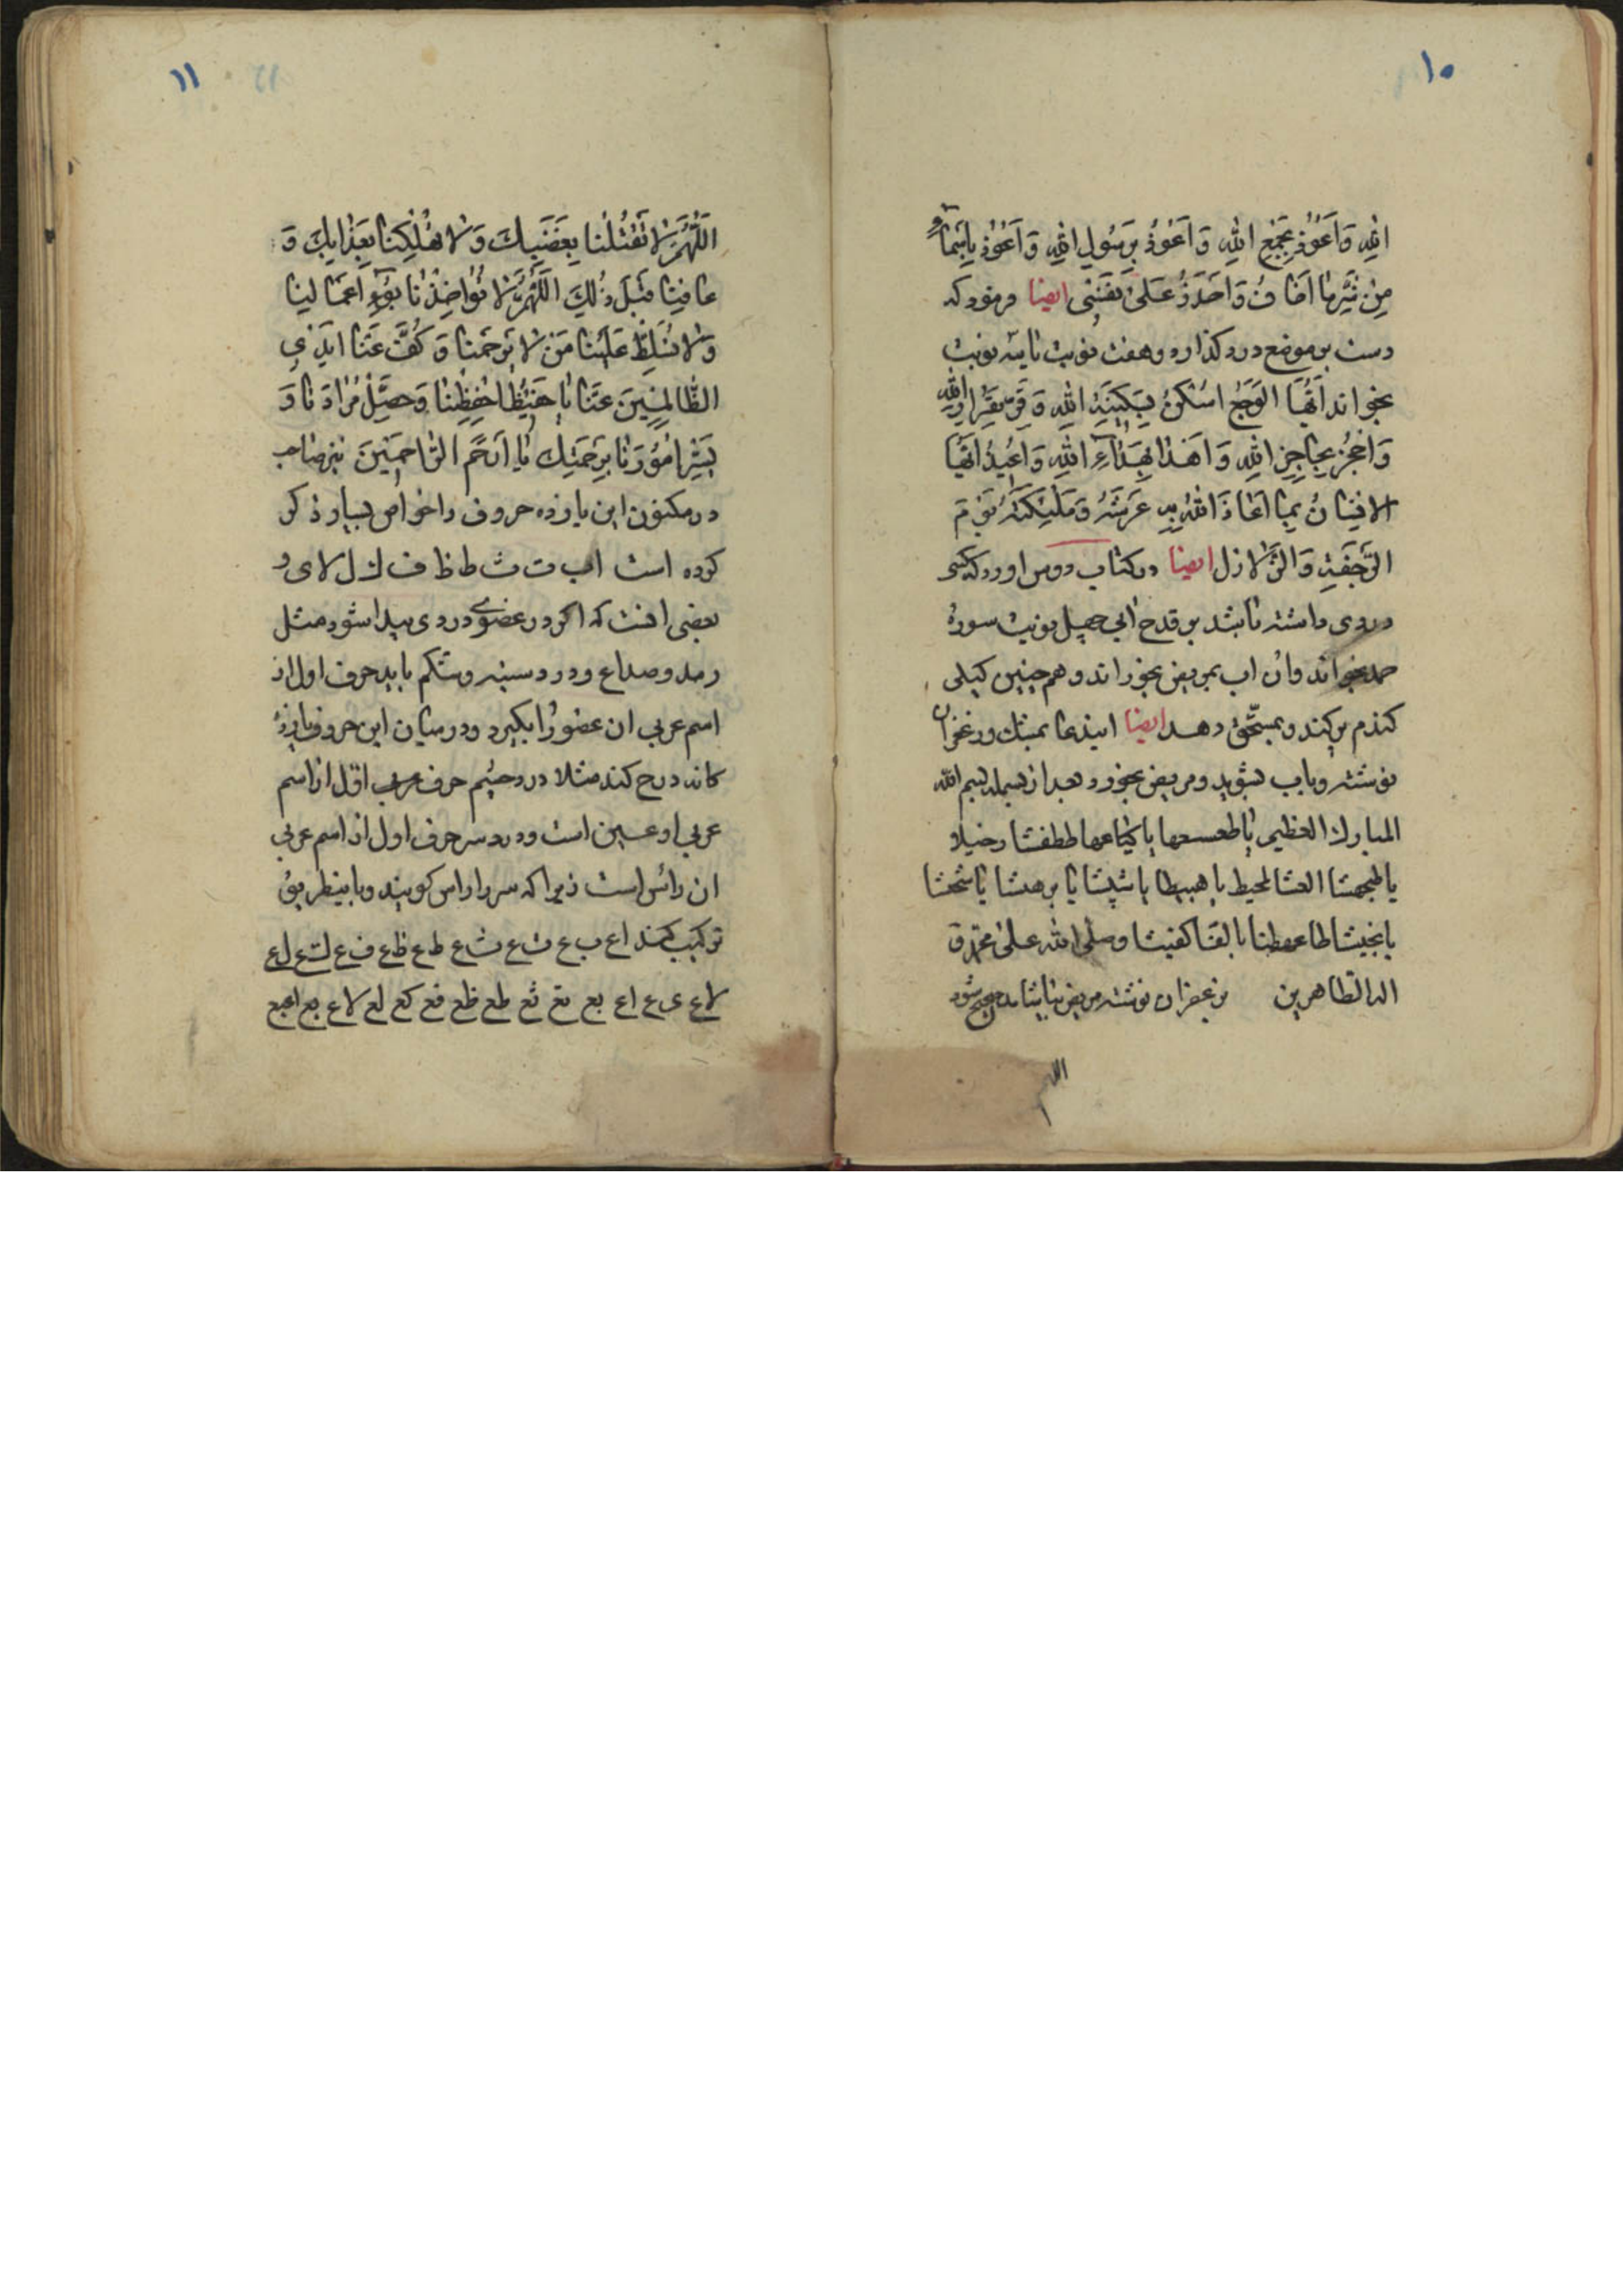 ١٠
الله وَاَعُوذُ بِجَمْعِ اللهِ وَاَعُوذُ بِرَسُولِ اللهِ وَاَعُوذُ بِاَسْمَاءِ
مِنْ شَرِّ مَا اَخَافُ وَاَحْذَرُ عَلىٰ نَفْسِى ايضا فرمود كه
دست بر موضع درد كذارد و هفت نوبت يا سه نوبت
بخواند اَيُّهَا الوَجَعُ اسْكُنْ بِسَكِينَةِ اللهِ وَقَرِّ بِقَرَارِ اللهِ
وَاحْجُزْ بِحَاجِزِ اللهِ وَاهْدَا بِهَدَاءِ اللهِ وَاُعِيذُ اَيُّهَا
الانْسَانُ بِمَا اَعَاذَ اللهُ بِهِ عَرْشَهُ وَمَلٰئِكَتَهُ يَوْمَ
الرَّجْفَةِ وَالزَّلازل ايضا در كتاب دروس اورد كه كسى
دردى داشته باشد بر قدح ابى چهل نوبت سورهٔ
حمد بخواند وان اب بمريض بخوراند و هم چنين كيلى
كندم پر كند و بمستحق دهد ايضا ايندعا بمشك و زعفران
نوشته وباب بشويد ومريض بخورد بعد از بسمله بسم الله
المبارك العظيم يا
يا
يا وصلى الله على محمد و
اله الطاهرين بزعفران نوشته مريض
اللهم
١١
اَللّٰهُمَّ لا تَقْتُلْنا بِغَضَبِكَ وَلا تُهْلِكْنا بِعَذابِكَ وَ
عافِنا قَبْلَ ذٰلِكَ اَللّٰهُمَّ لا تُؤاخِذْنا بِسُوءِ اَعْمالِنا
وَلا تُسَلِّطْ عَلَيْنا مَنْ لا يَرْحَمُنا وَكُفَّ عَنّا اَيْدِي
الظّالِمِينَ عَنّا يا حَفِيظُ احْفِظْنا وَحَصِّلْ مُرادَنا وَ
يَسِّرْ اُمُورَنا بِرَحْمَتِكَ يا اَرْحَمَ الرّاحِمِينَ نيز صاحب
در مكنون اين يازده حروف را خواص بسيار ذكر
كرده است ا ب ت ث ط ظ ف ك ل لا ى و
بعضى انست كه اكر در عضوى دردى پيدا شود مثل
رمد و صداع و درد سينه و شكم بايد حرف اول از
اسم عربى ان عضو را بكيرد و در ميان اين حروف يازده
كانه درج كند مثلا درد چشم حرف اول از اسم
عربى او عين است و درد سر حرف اول از اسم عربى
ان رائس است زيرا كه سر را راس كويند و باينطريق
تركيب كند ا ع ب ع ت ع ث ع ط ع ظ ع ف ع ك ع ل ع
لا ع ى ع اع بع تع ثع طع ظع فع كع لع لاع يع